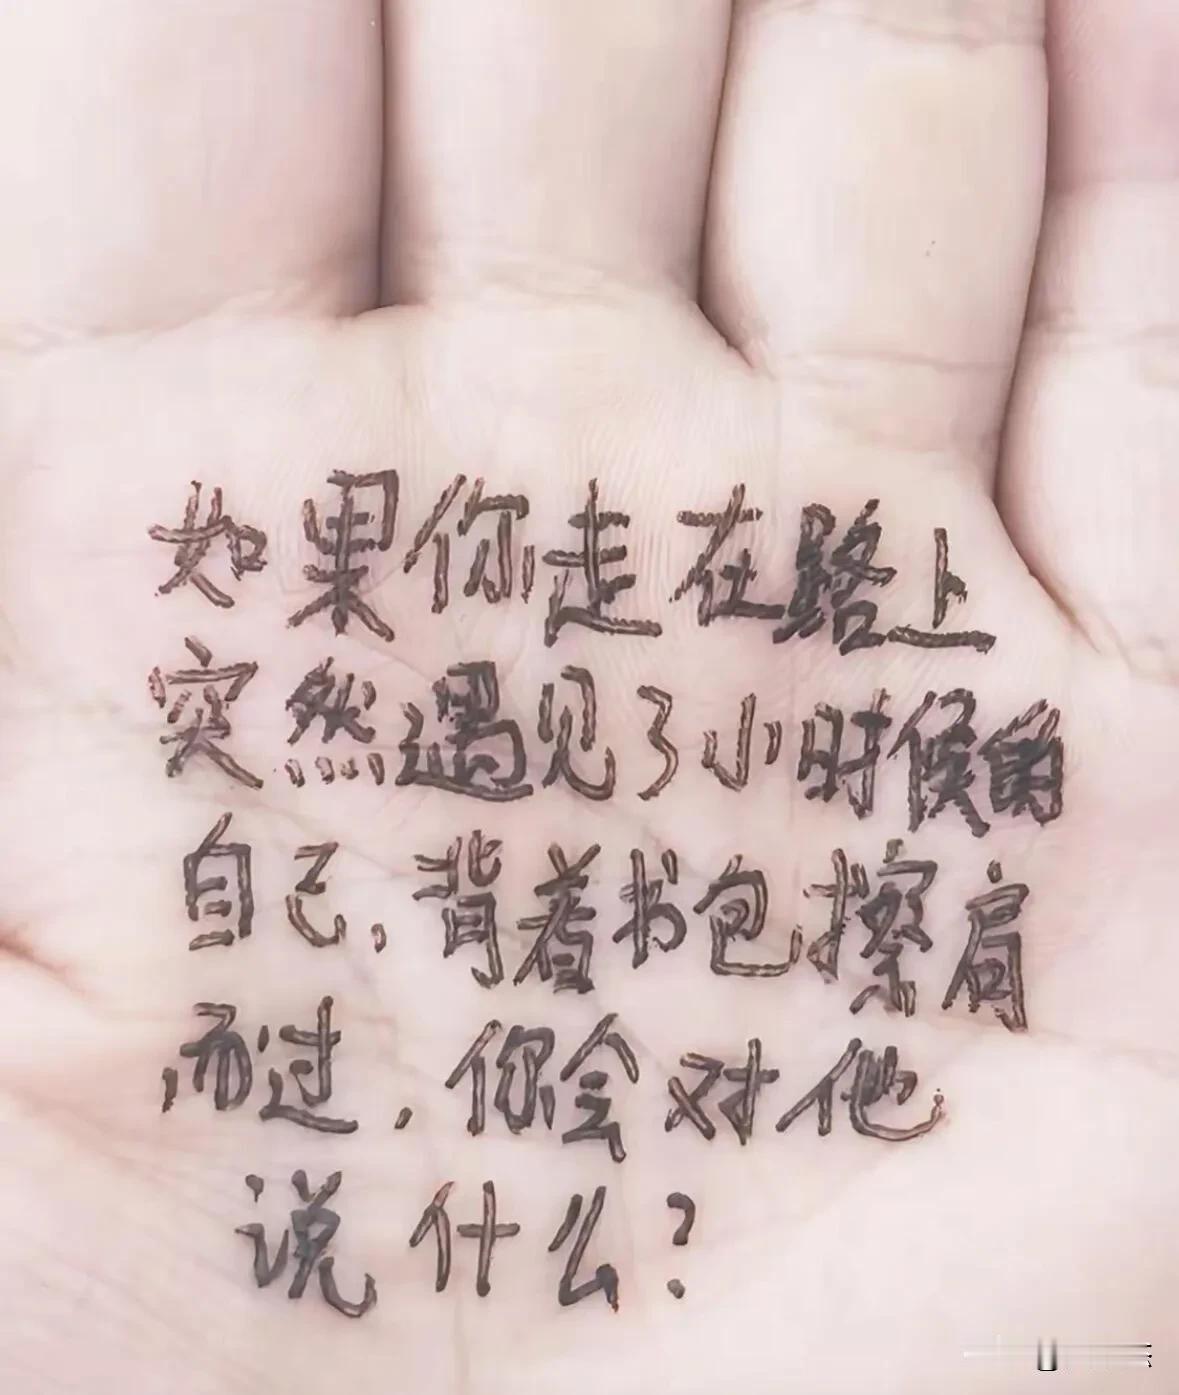 如果你走在路上
突然遇见了小时候的
自己，背着书包擦肩
而过，你会对他
说什么？